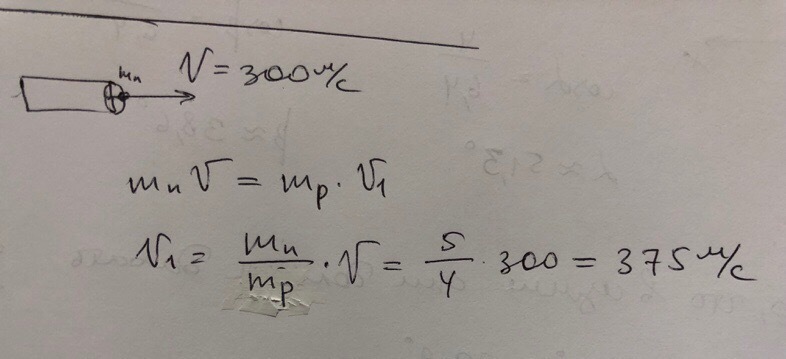 mп V = 300 м/с
mп V = mр · V₁
V₁ = mп/mр · V = 5/4 · 300 = 375 м/с